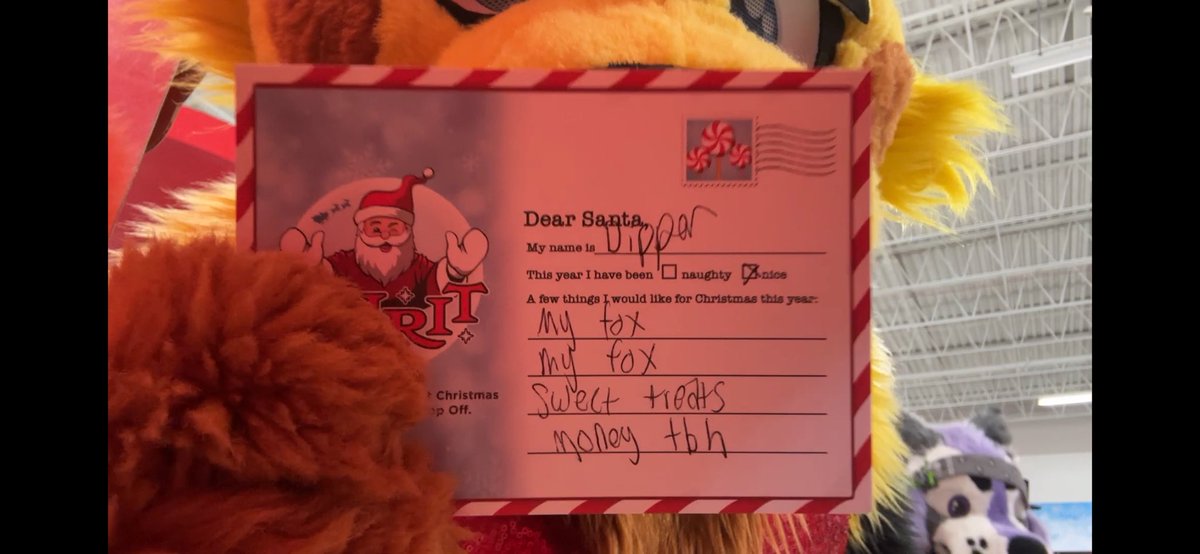 Dear Santa,
My name is Dipper
This year I have been ☐ naughty ☒ nice
A few things I would like for Christmas this year:
My fox
my fox
Sweet treats
money tbh
RIT
Christmas
p Off.